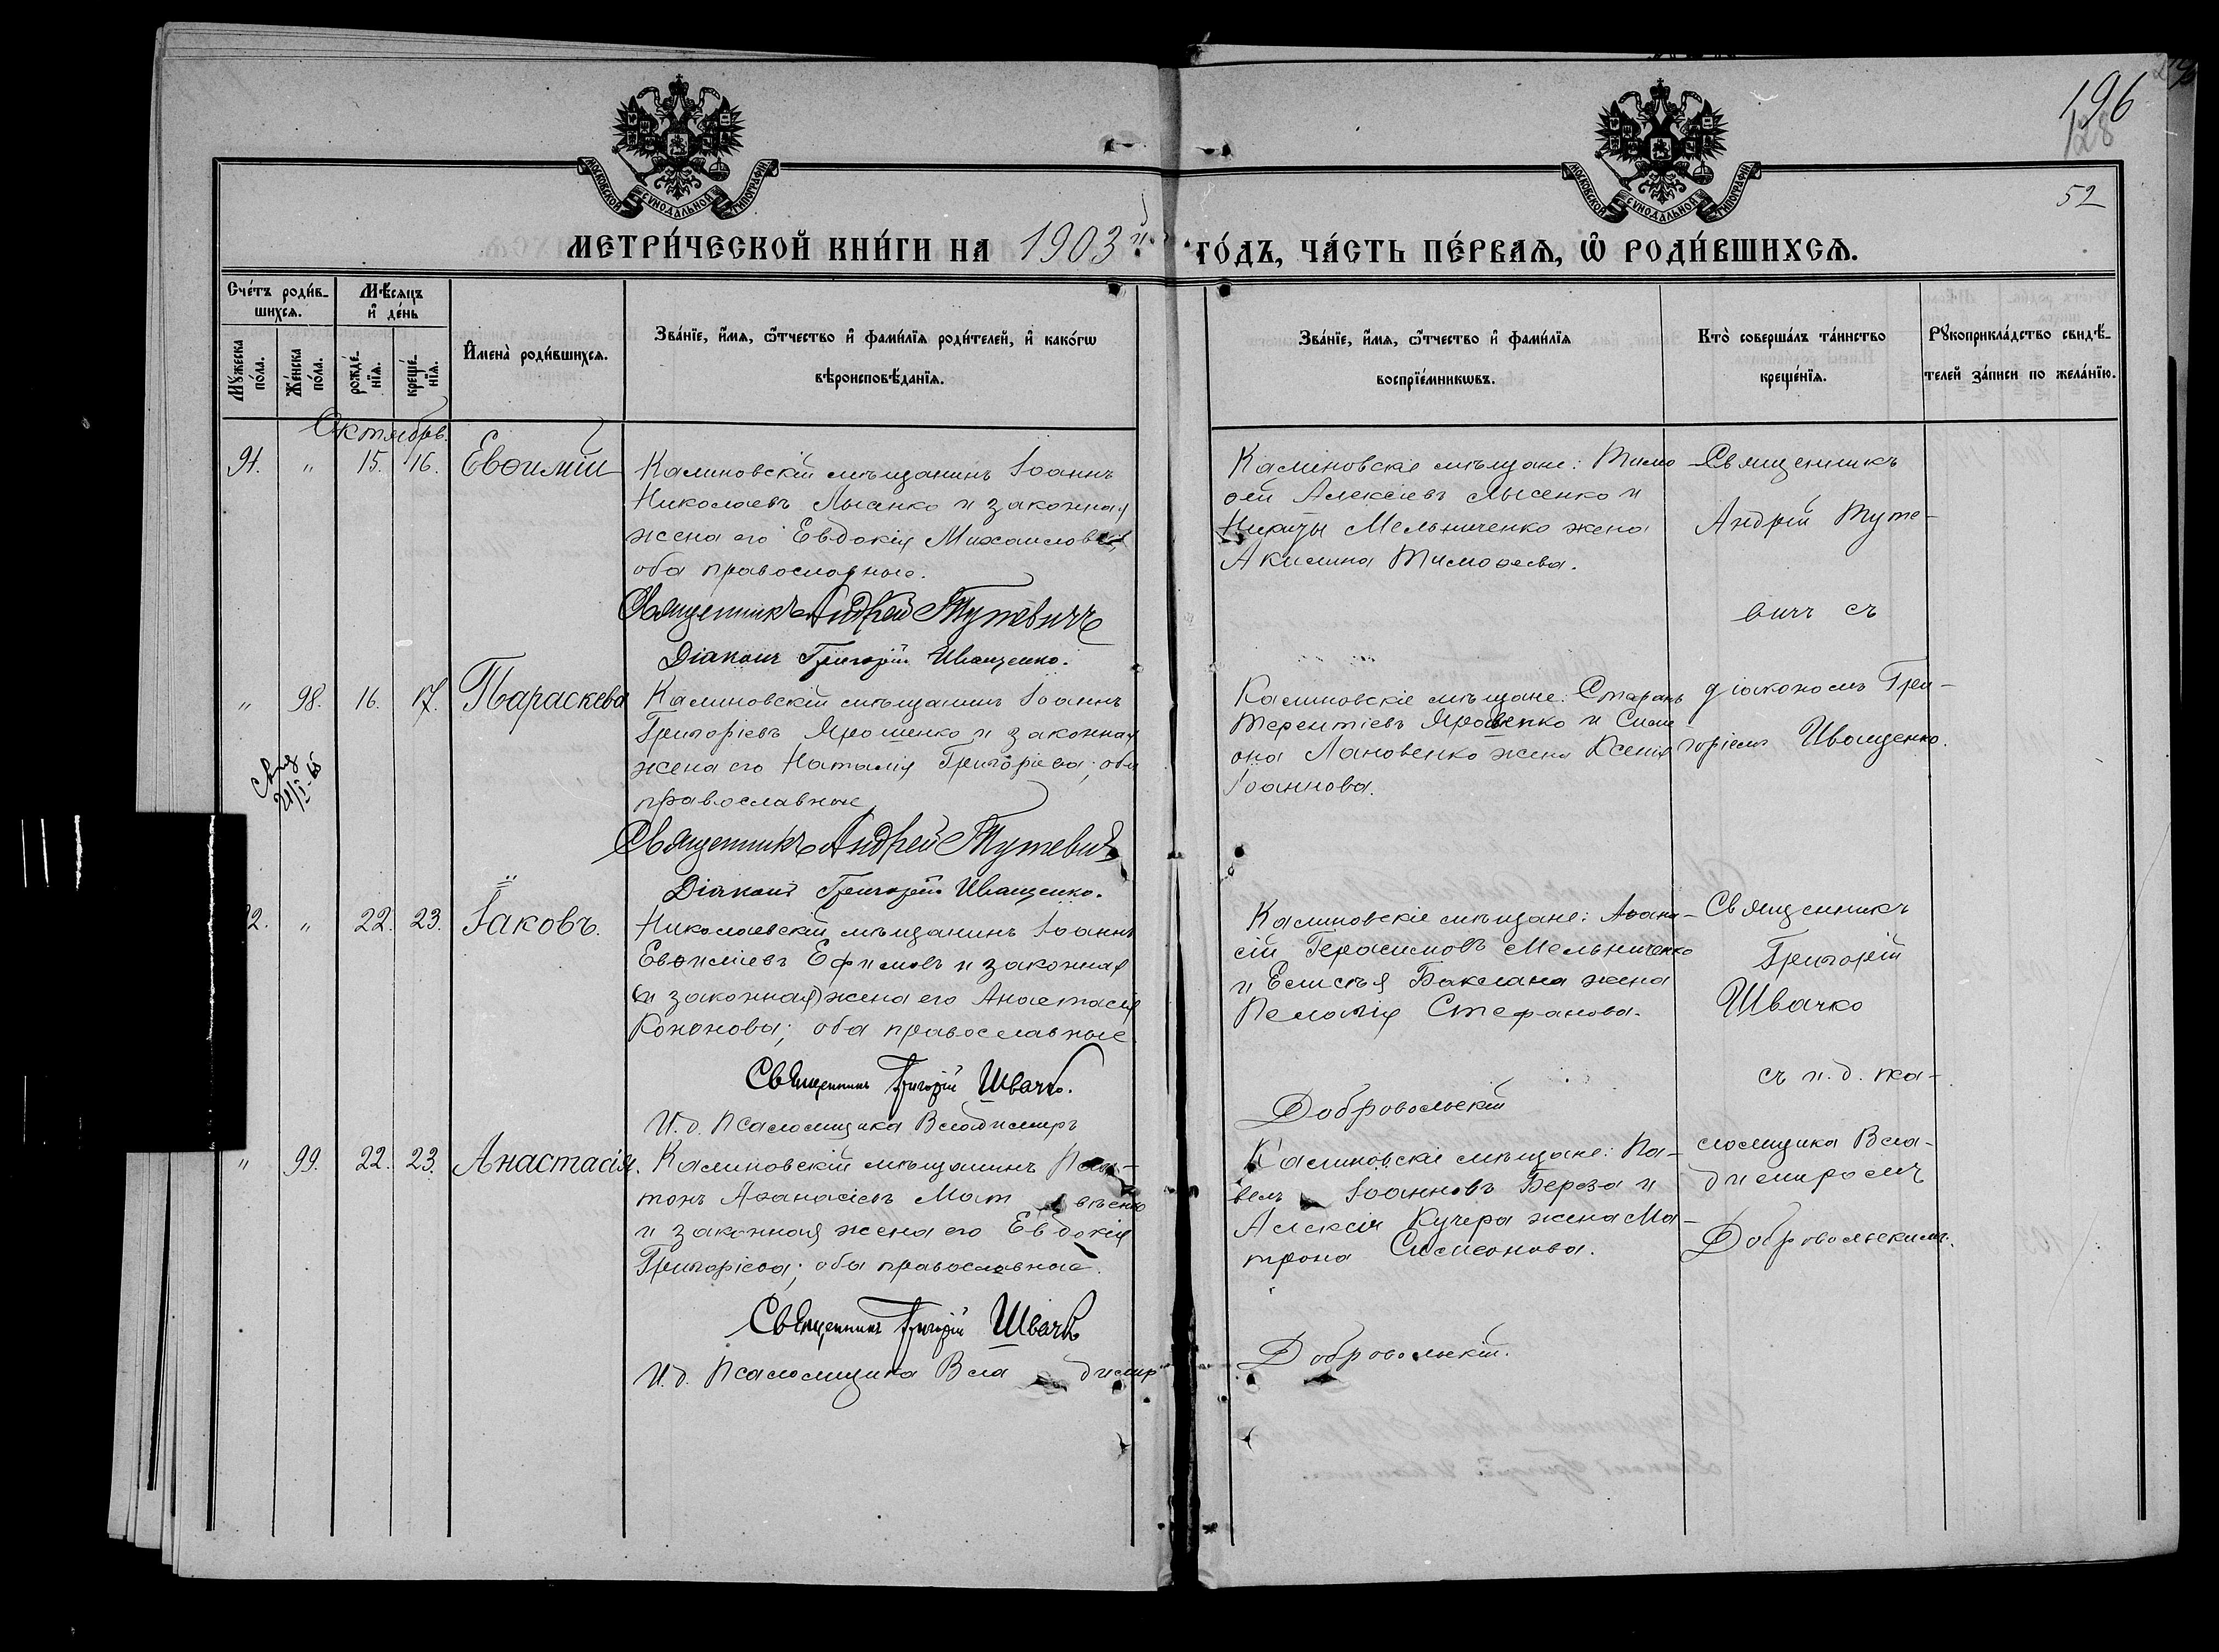 196
128
52
МОСКОВСКОЙ СѴНОДАЛЬНОЙ ТИПОГРАФІИ
МОСКОВСКОЙ СѴНОДАЛЬНОЙ ТИПОГРАФІИ
МЕТРИ́ЧЕСКОЙ КНИ́ГИ НА 1903й ГО́ДЪ, ЧА́СТЬ ПЕ́РВАѦ, Ѽ РОДИ́ВШИХСѦ.
Сче́тъ роди́в-
шихсѧ.
Мꙋ́жеска по́ла.
Же́нска по́ла.
Мѣ́сѧцъ и҆ де́нь
рожде́-
нїѧ.
креще́-
нїѧ.
И҆мена̀ роди́вшихсѧ.
Зва́нїе, и҆́мѧ, ѻ҆́тчество и҆ фами́лїѧ роди́телей, и҆ како́гѡ
вѣроисповѣ́данїѧ.
Зва́нїе, и҆́мѧ, ѻ҆́тчество и҆ фами́лїѧ
воспрїе́мникѡвъ.
Кто̀ соверша́лъ та́инство
креще́нїѧ.
Рꙋкоприкла́дство свидѣ́-
телей за́писи по жела́нїю.
Октябрь.
91. " 15. 16. Евѳимій
Калиновскій мѣщанинъ Іоаннъ
Николаевъ Лысенко и законная
жена его Евдокія Михаилова,
оба православные.
Священникъ Андрей Тутевичъ
Діаконъ Григорій Иващенко.
Калиновскіе мѣщане: Тимо
ѳей Алексіевъ Лысенко и
Никиты Мельниченко жена
Акилина Тимоѳеева.
Священникъ
Андрей Туте-
вичъ съ
" 98. 16. 17. Параскева
Калиновскій мѣщанинъ Іоаннъ
Григоріевъ Ярошенко и законная
жена его Наталія Григоріева; оба
православные
Священникъ Андрей Тутевичъ
Діаконъ Григорій Иващенко.
Калиновскіе мѣщане: Стефанъ
Терентіевъ и Симе
она Лановенко жена Ксенія
Іоаннова.
діакономъ Гри-
горіемъ Иващенко.
2. " 22. 23. Іаковъ.
Николаевскій мѣщанинъ Іоаннъ
Евѳиміевъ Ефимовъ и законная
(и законная) жена его Анастасія
Кононова; оба православные
Священникъ Григорій Швачко.
И. д. Псаломщика Владимиръ
Добровольскій
Калиновскіе мѣщане: Аѳана-
сій Герасимовъ Мельниченко
и Елисѣя Баклана жена
Пелагія Стефанова.
Священникъ
Григорій
Швачко
съ и. д. пса-
" 99. 22. 23. Анастасія.
Калиновскій мѣщанинъ Пла-
тонъ Аѳанасіевъ Мат вѣенко
и законная жена его Евдокія
Григоріева; оба православные.
Священникъ Григорій Швачко
И. д. Псаломщика Вла димиръ
Добровольскій.
Калиновскіе мѣщане: Па-
велъ Іоанновъ Береза и
Алексія Кучера жена Ма-
трона Симеонова.
ломщика Вла-
димиромъ
Добровольскимъ.